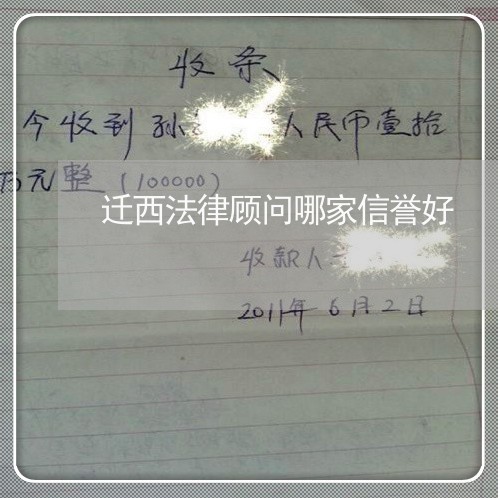 收条
今收到孙 人民币壹拾
万元整(100000)
迁西法律顾问哪家信誉好
收款人
2011年6月2日